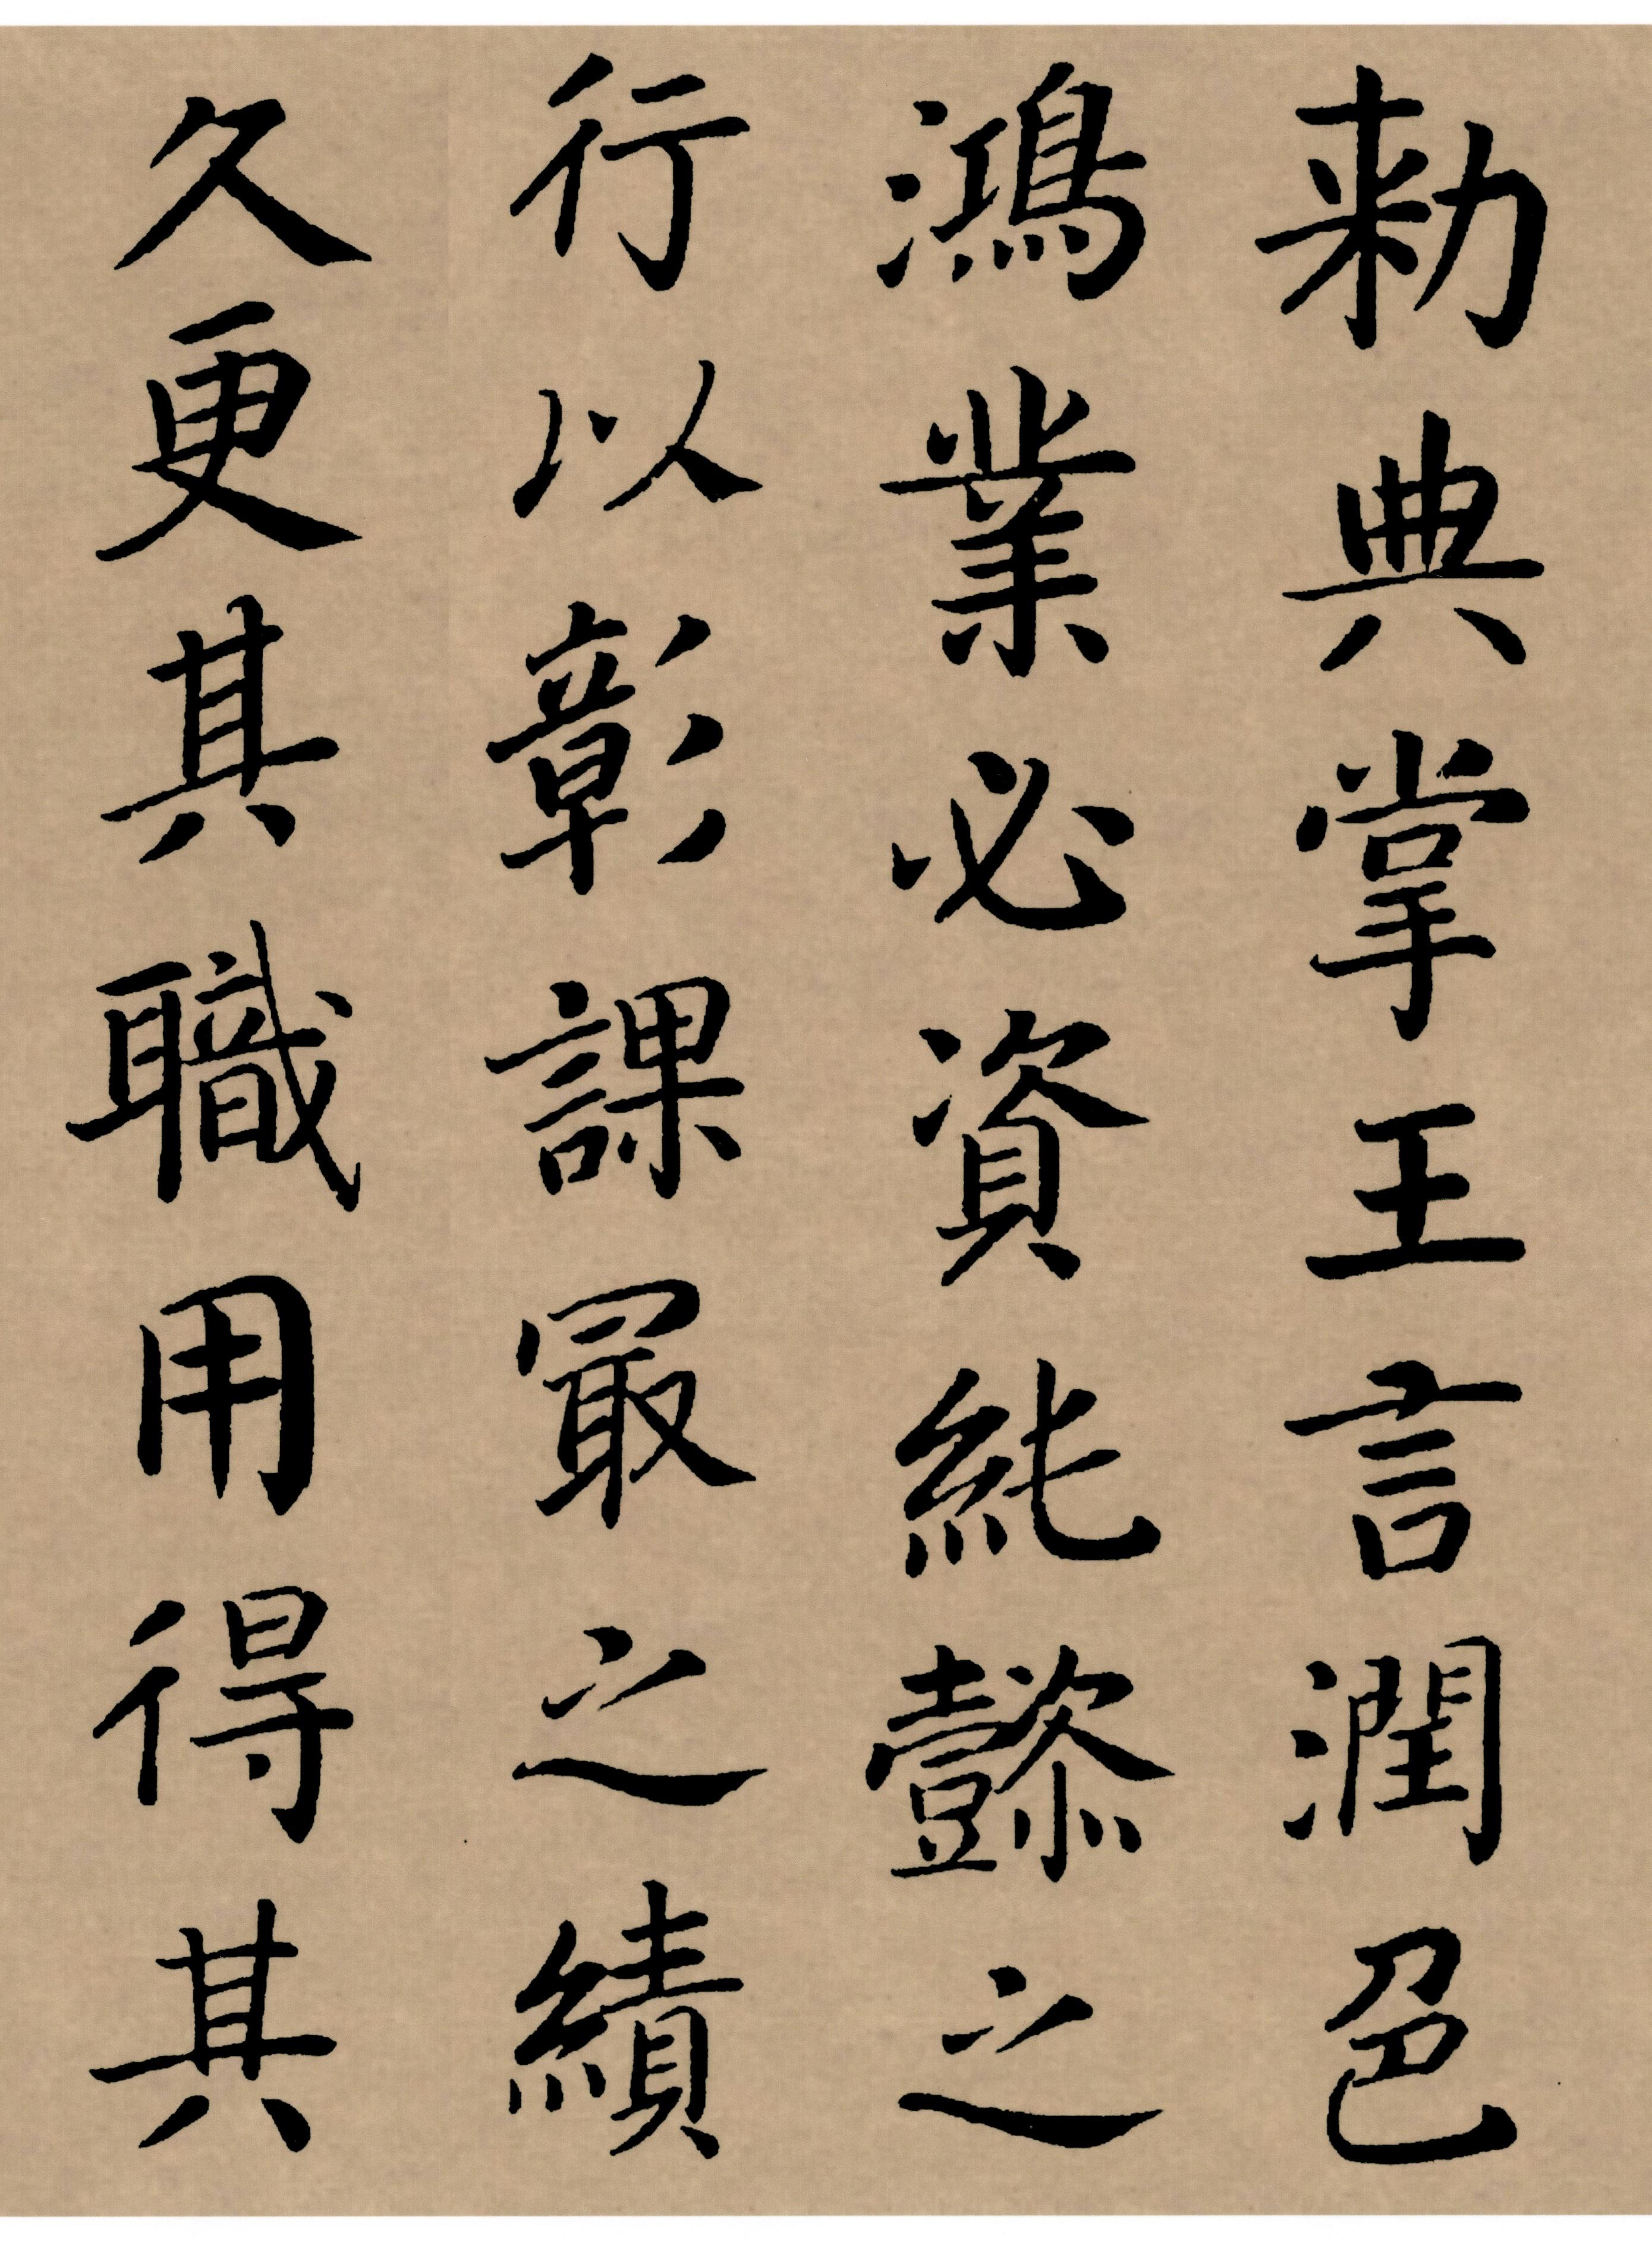 勑典掌王言潤色
鴻業必資純懿之
行以彰課冣之績
久更其職用得其